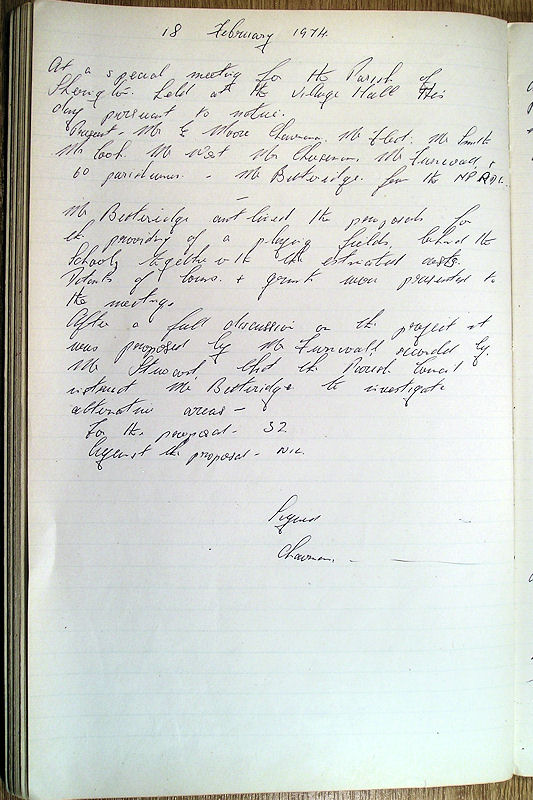 18 February 1974.
At a special meeting for the Parish of
held at the Village Hall this
day pursuant to notice.
Present. Mr E Moore Chairman. Mr Fleet. Mr Smith
Mr Cook. Mr West Mr Mr Furnivall, +
60 parishioners. - Mr Betteridge. from the NP RDC.
Mr Betteridge outlined the proposals for
the providing of a playing fields, behind the
School, together with the estimated costs.
Details of loans. + grants were presented to
the meeting.
After a full discussion on the project it
was proposed by Mr Furnivall seconded by
Mr Steward that the Parish Council
instruct Mr Betteridge to investigate
alternative areas -
For the proposal - 32
Against the proposal - NIL.
Signed
Chairman. -